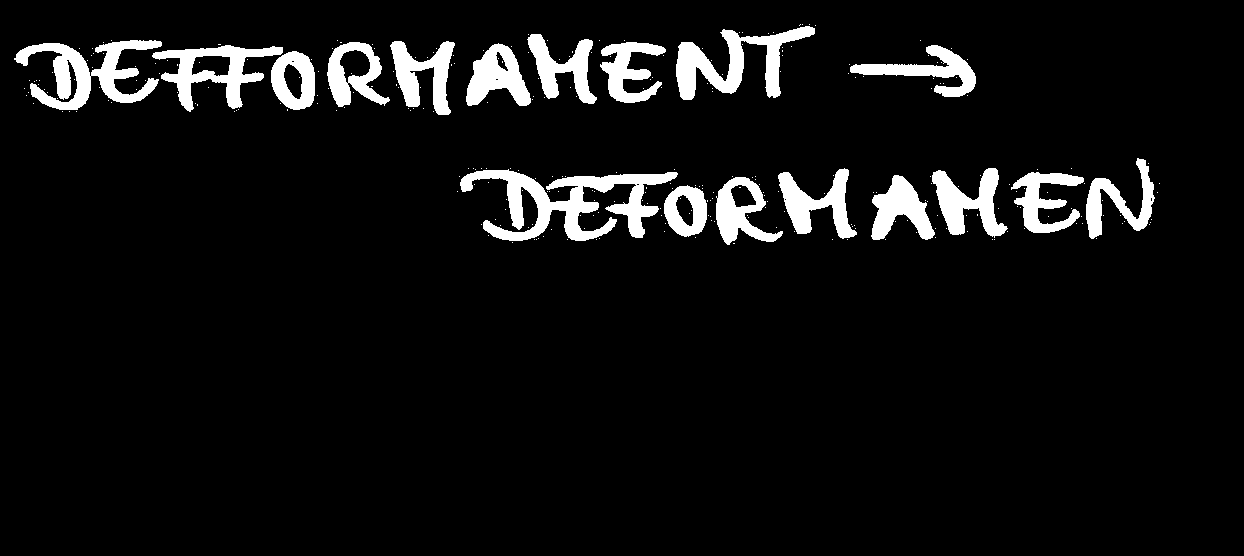 DEFFORMAMENT →
DEFORMAMEN